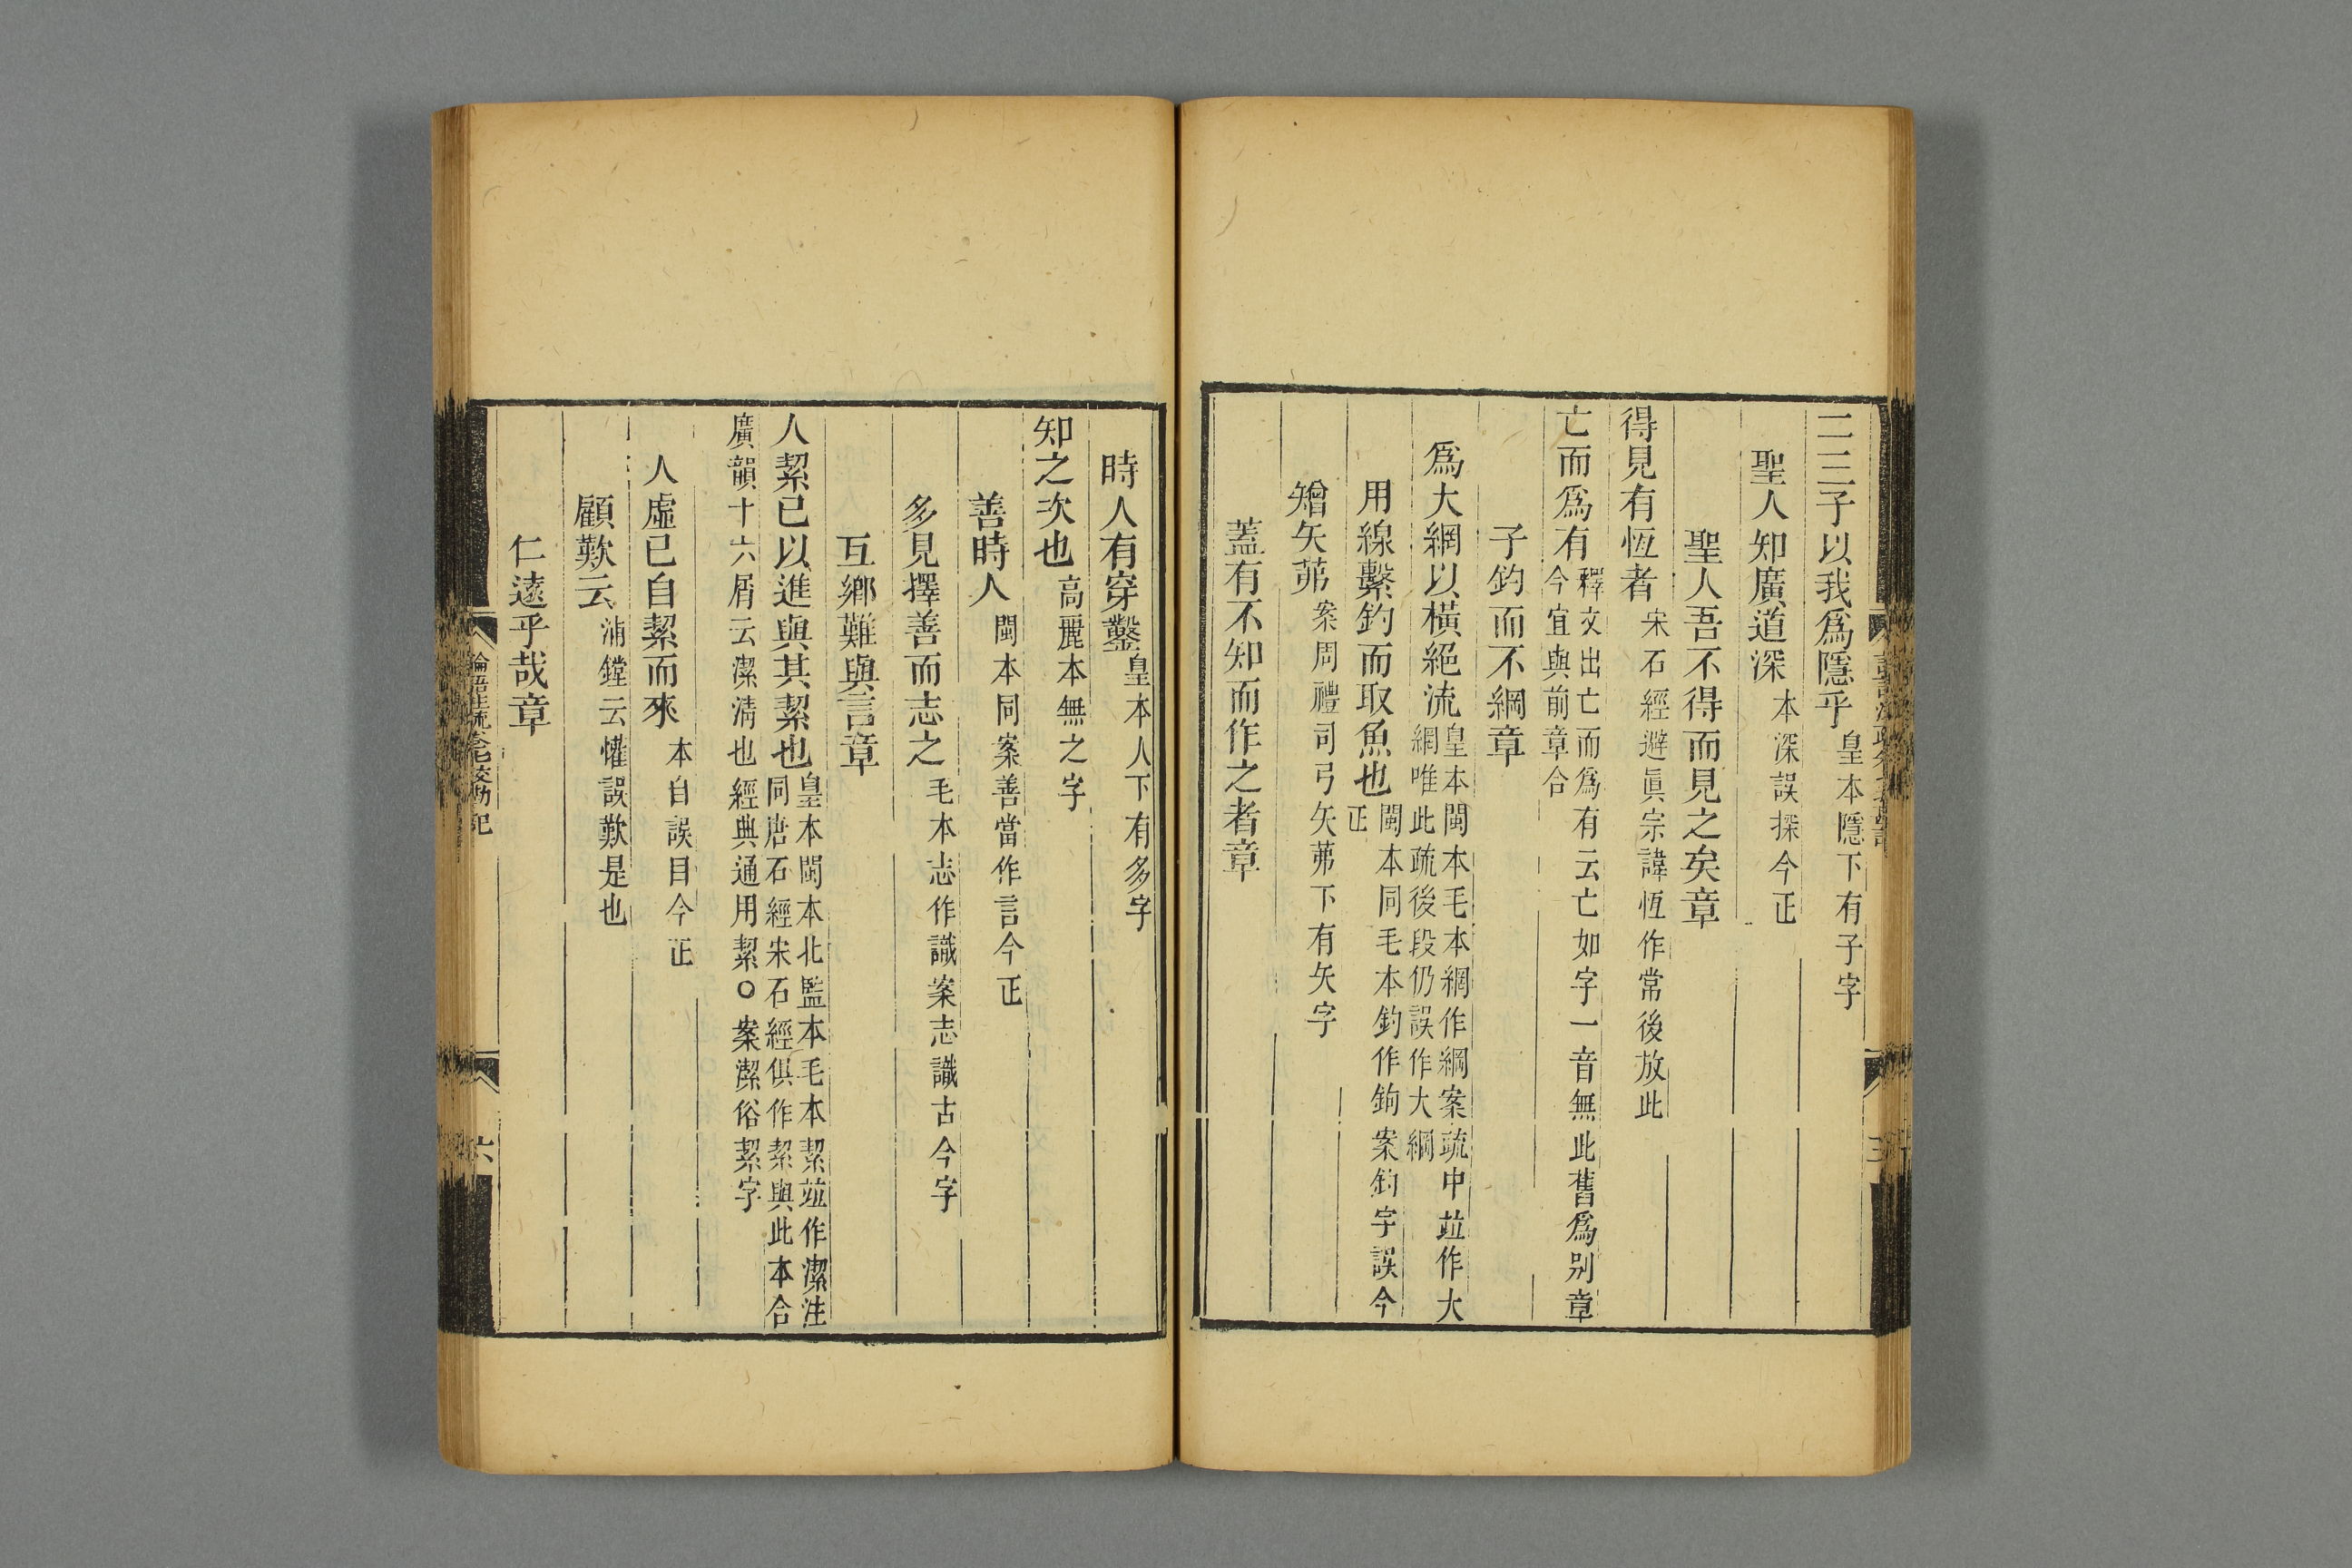 二三子以我爲隱乎皇本隱下有子字
聖人知廣道深本深誤探今正
聖人吾不得而見之矣章
得見有恆者宋石經避眞宗諱恆作常後放此
亡而爲有釋文出亡而爲有云亡如字一音無此舊爲別章
今宜與前章合
子釣而不綱章
爲大網以橫絕流皇本閩本毛本網作綱案疏中竝作大
網唯此疏後段仍誤作大綱
用線繫釣而取魚也閩本同毛本釣作鉤案釣字誤今
正
矰矢茀案周禮司弓矢茀下有矢字
蓋有不知而作之者章
時人有穿鑿皇本人下有多字
知之次也高麗本無之字
善時人閩本同案善當作言今正
多見擇善而志之毛本志作識案志識古今字
互鄉難與言章
人絜已以進與其絜也皇本閩本北監本毛本絜竝作潔注
同唐石經宋石經俱作絜與此本合
廣韻十六屑云潔淸也經典通用絜○案潔俗絜字
人虛已自絜而來本自誤目今正
顧歎云浦鏜云懽誤歎是也
仁遠乎哉章
論語注疏卷七校勘記
六